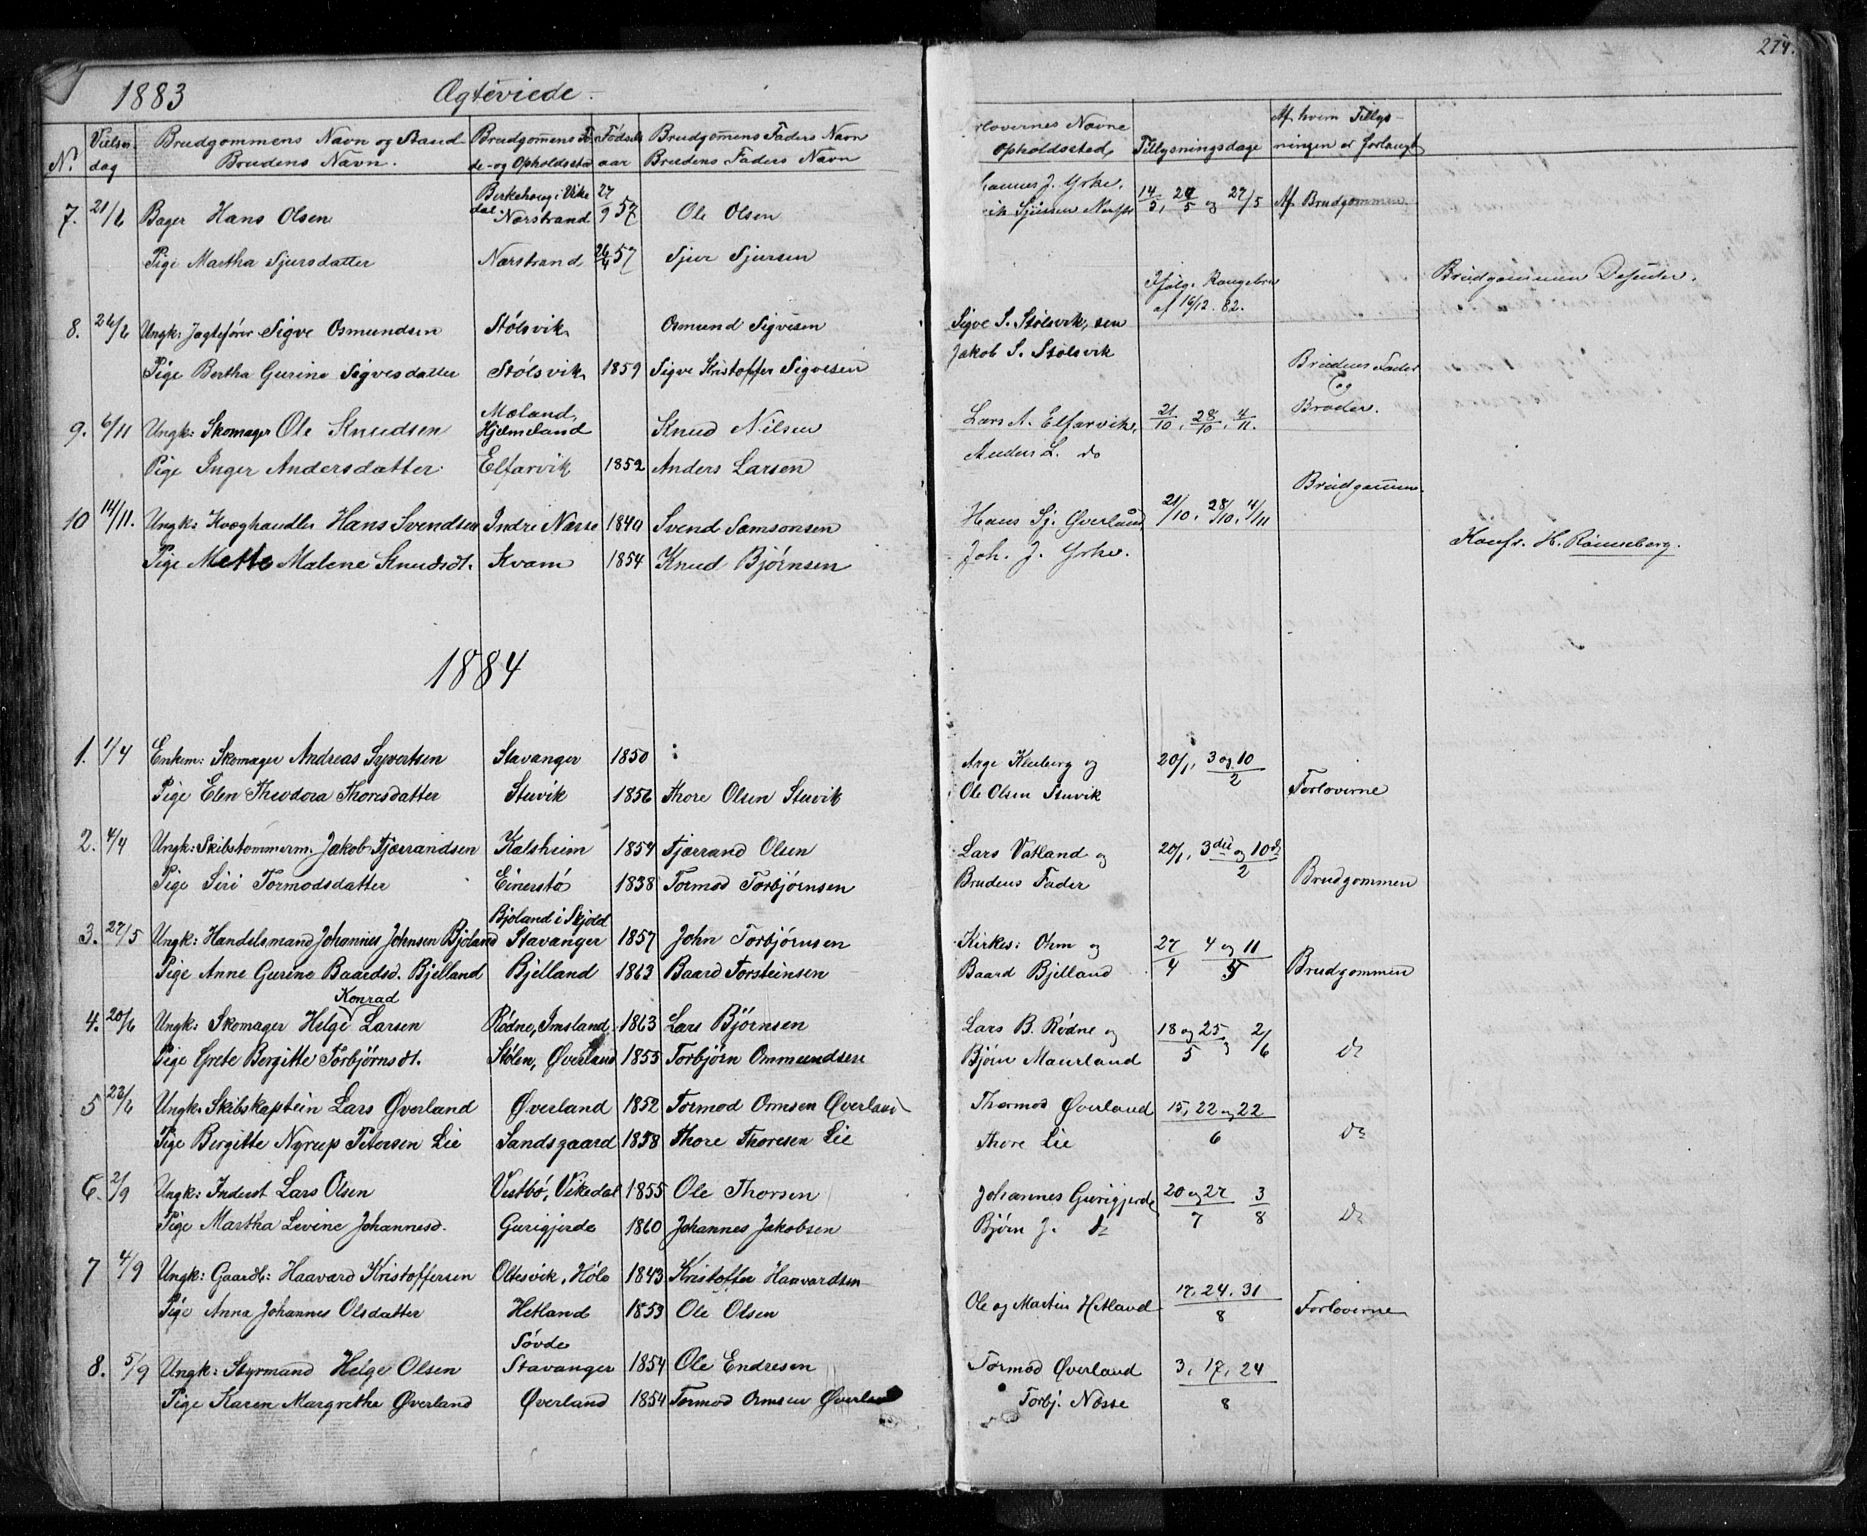 274.
1883 Ægteviede.
No. Vielses dag Brudgommens Navn og Stand Brudens Navn. Brudgommens Fø de- og Opholdssted Fødsels aar Brudgommens Faders Navn Brudens Faders Navn rlovernes Navne Opholdssted Tillysningsdage Af hvem Tillys- ningen er forlangt
7. 21/6 Bager Hans Olsen Birkehoug i Vike dal. Nærstrand 27/9 57 Ole Olsen J. Yrke, 14/5, 24/5 og 27/5 Af Brudgommen
Pige Martha Sjursdatter Nærstrand 26/4 57 Sjur Sjursen
Ifølge Kongebrev af 16/12. 82. Brudgommen Desuden.
8. 26/6 Ungk: Jagtefører Sigve Osmundsen Stølsvik Osmund Sigvesen Sigve S. Stølsvik, sen
Pige Bertha Gurine Sigvesdatter Stølsvik 1859 Sigve Kristoffer Sigvesen Jakob S. Stølsvik
Brudens Fader og Broder.
9. 6/11 Ungk: Skomager Ole Knudsen Mæland, Hjelmeland Knud Nilsen Lars A. Elfarvik, 21/10, 28/10, 4/11.
Pige Inger Andersdatter Elfarvik 1852 Anders Larsen Anders L. do
Brudgommen
10 14/11. Ungk: Kvæghandler Hans Svendsen Indre Næsse 1840 Svend Samsonsen Hans Sj. Øverland 21/10, 28/10, 4/11
Pige Mette Malene Knudsdt. Kvam 1854 Knud Bjørnsen Joh. J. Yrke. Konfr. H. Rønneberg.
1884
1. 1/4 Enkem: Skomager Andreas Syvertsen Stavanger 1850 : Aage Kleiberg og 20/1, 3 og 10/2
Pige Elen Theodora Thoresdatter Stuvik 1856 Thore Olsen Stuvik Ole Olsen Stuvik Forloverne
2. 4/4 Ungk: Skibstømmerm. Jakob Fjærrandsen Kalsheim 1854 Fjærrand Olsen Lars Vatland og 20/1, 3die og 10de/2
Pige Siri Tormodsdatter Einerstø 1838 Tormod Torbjørnsen Brudens Fader Brudgommen
3. 27/5 Ungk: Handelsmand Johannes Johnsen Bjoland Bjoland i Skjold Stavanger 1857 John Torbjørnsen Kirkes: Ohm og 27/4 4 og 11/5
Pige Anne Gurine Baardsd. Bjelland Bjelland 1863 Baard Torsteinsen Baard Bjelland Brudgommen
4. 20/6 Ungk: Skomager Helge Konrad Larsen Rødne, Imsland 1863 Lars Bjørnsen Lars B. Rødne og 18 og 25/5, 2/6
Pige Grete Bergitte Torbjørnsdt. Stølen, Øverland 1855 Torbjørn Ommundsen Bjørn Maurland do
5 23/6 Ungk. Skibskaptein Lars Øverland Øverland 1852 Tormod Ormsen Øverland Thormod Øverland 15, 22 og 22/6
Pige Bergitte Nyrup Petersen Lie Sandsgaard 1858 Thore Thoresen Lie Thore Lie do
6. 2/9 Ungk: Inderst Lars Olsen Vestbø, Vikedal 1855 Ole Thorsen Johannes Gurigjerde 20 og 27/7 3/8
Pige Martha Levine Johannesd. Gurigjerde 1860 Johannes Jakobsen Bjørn J. do do
7 4/9 Ungk: Gaardb: Haavard Kristoffersen Oltesvik, Høle 1843 Kristoffer Haavardsen 17, 24, 31/8
Pige Anna Johannes Olsdatter Hetland 1853 Ole Olsen Ole og Martin Hetland Forloverne
8. 5/9 Ungk: Styrmand Helge Olsen Søvde Stavanger 1854 Ole Endresen Tormod Øverland 3, 17, 24/8
Pige Karen Margrethe Øverland Øverland 1854 Tormod Ormsen Øverland Torbj. Næsse